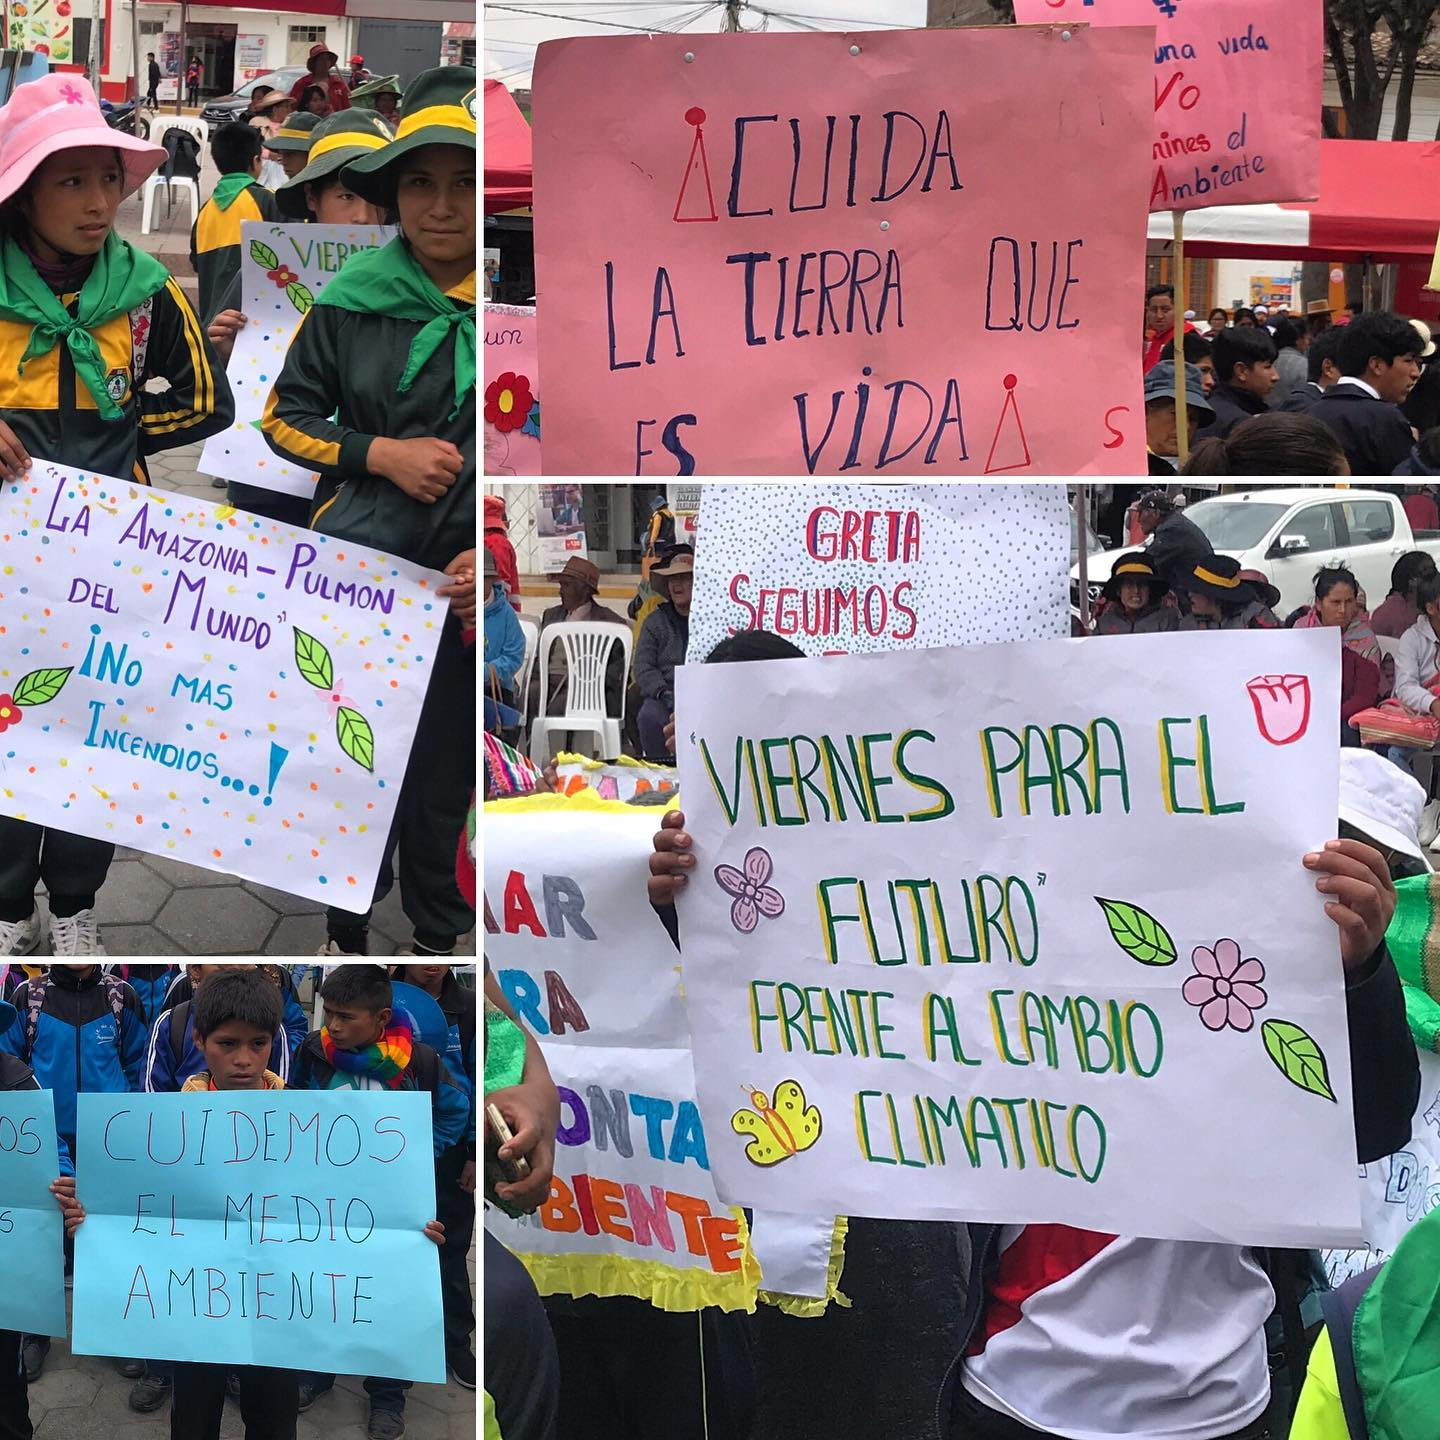 "VIERN
"LA AMAZONIA - PULMON
DEL MUNDO"
¡NO MAS
INCENDIOS...!
¡CUIDA
LA TIERRA QUE
ES VIDA!
S
una vida
No
el
Ambiente
un
GRETA
SEGUIMOS
"VIERNES PARA EL
FUTURO"
FRENTE AL CAMBIO
CLIMATICO
AR
RA
ONTA
BIENTE
OS
S
CUIDEMOS
EL MEDIO
AMBIENTE